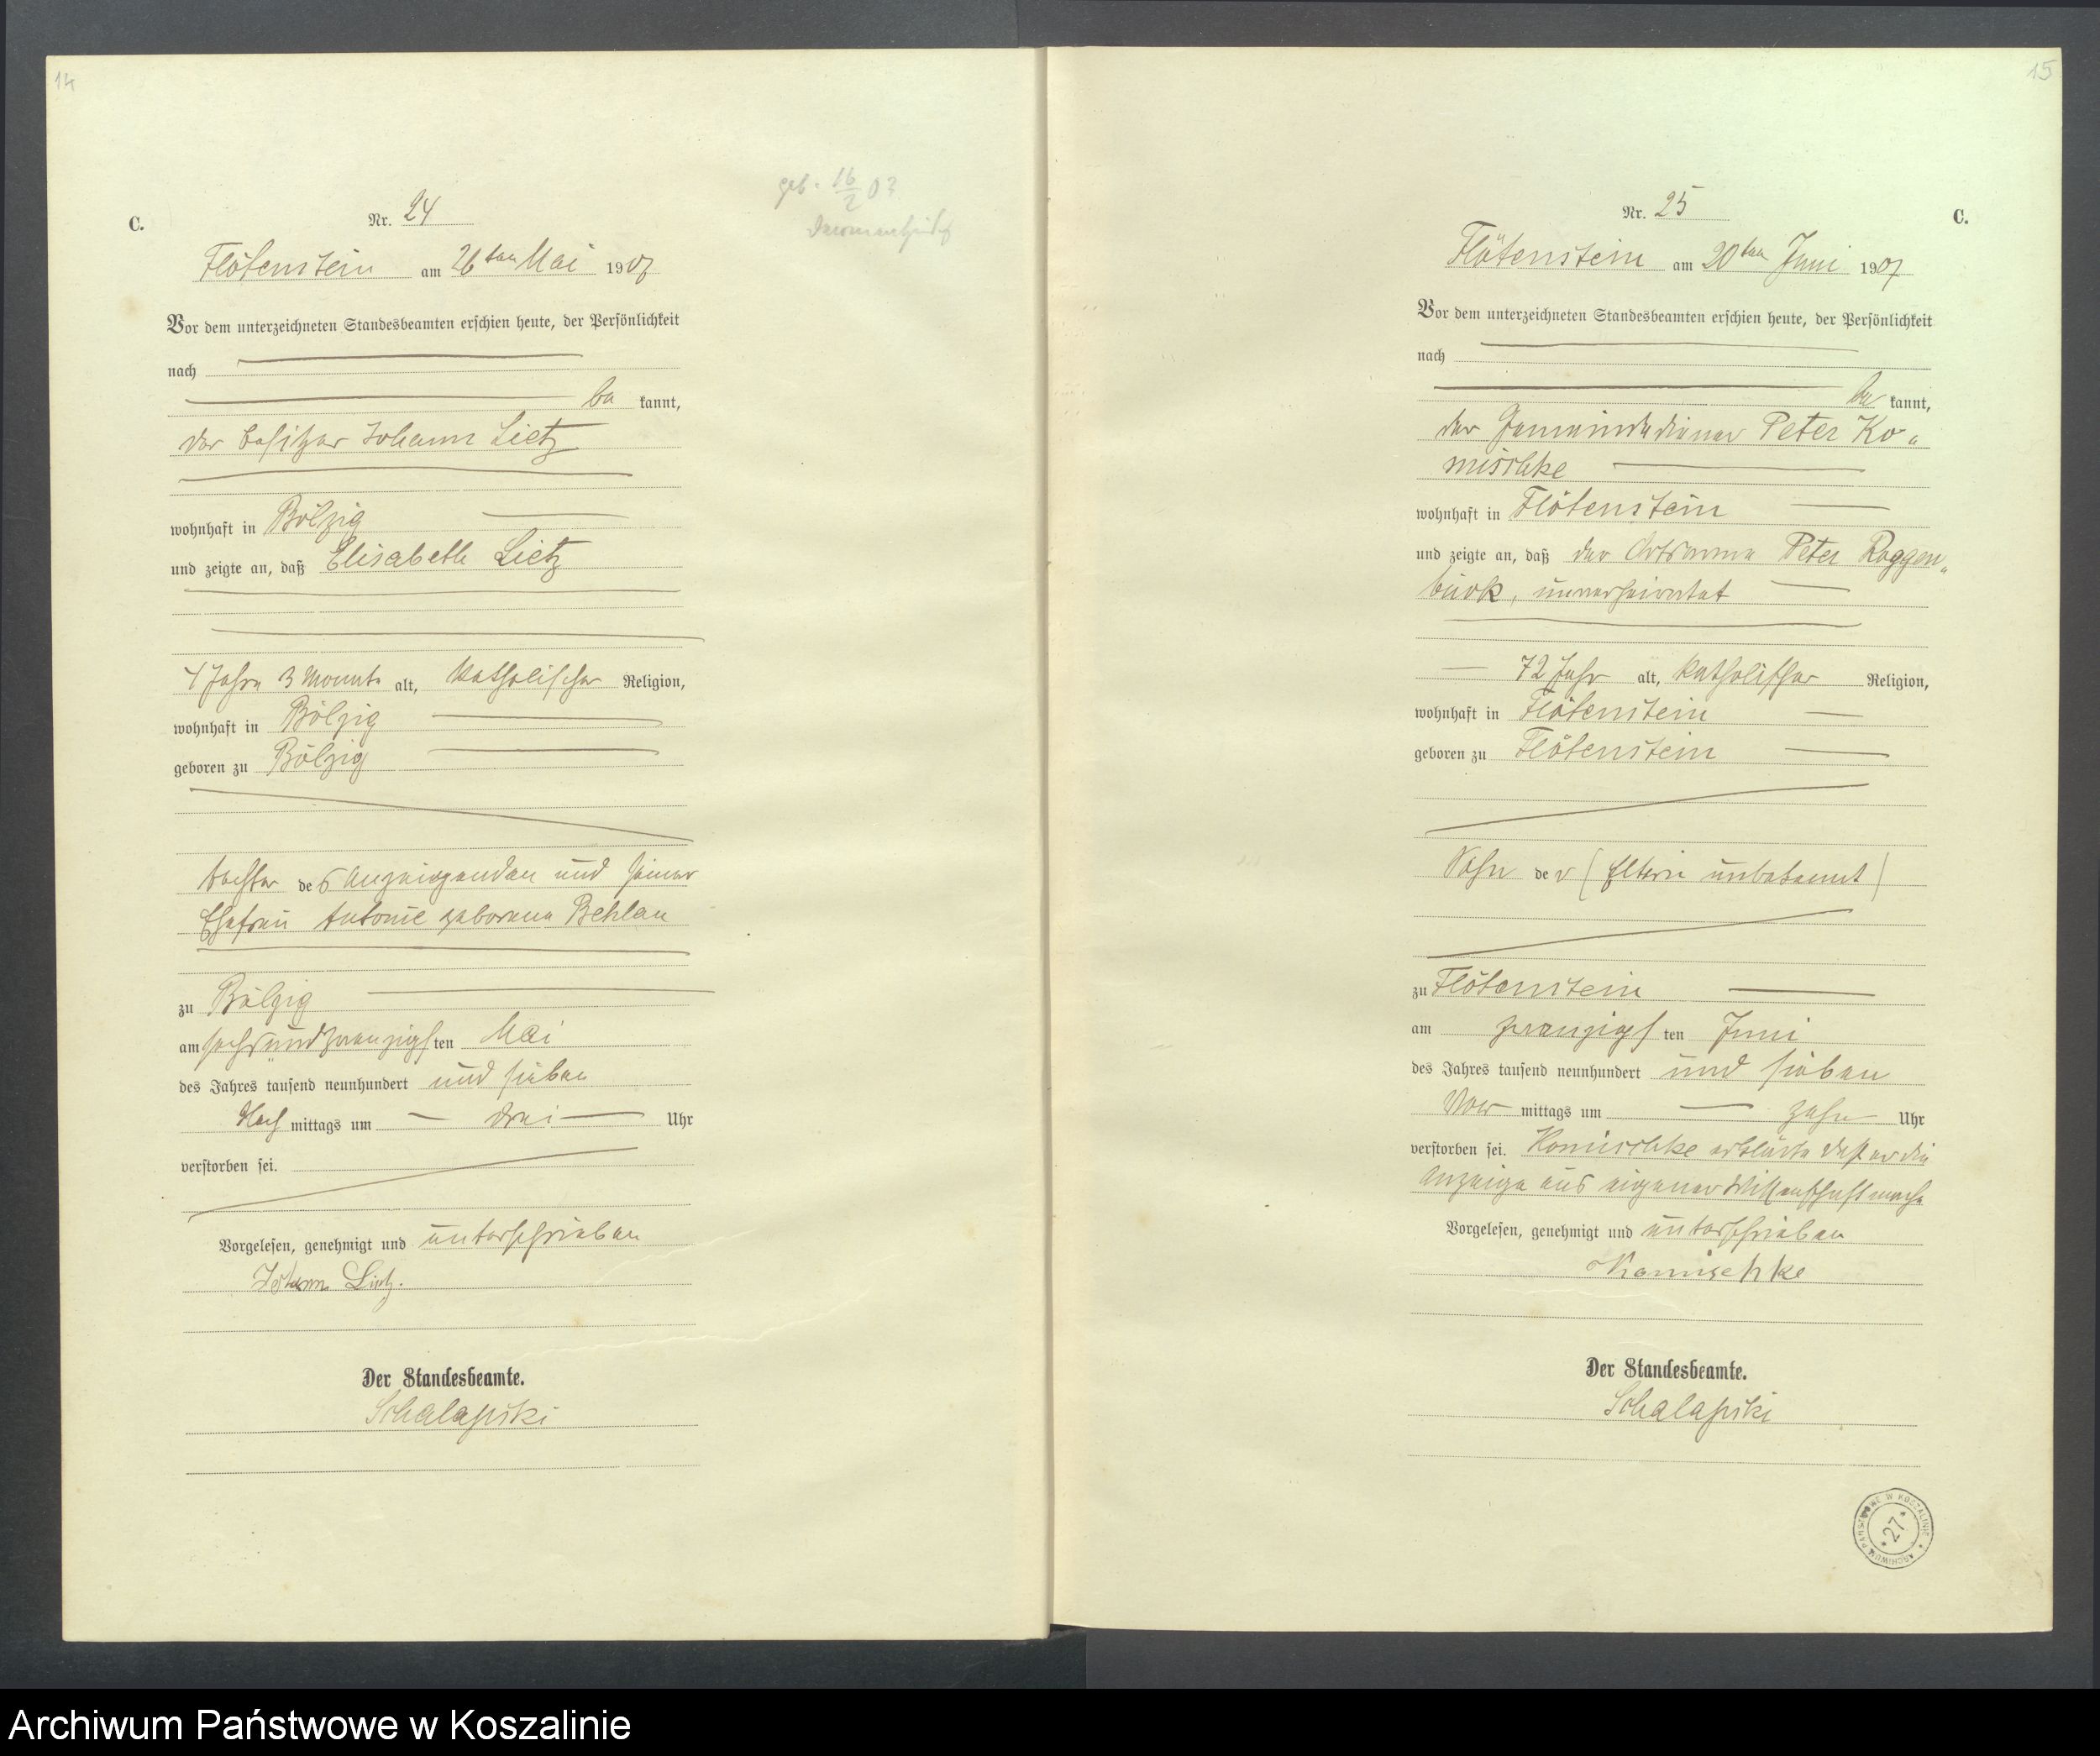 14
geb. 16/2 03
C.
Nr. 24
Flötenstein am 26ten Mai 1907
Vor dem unterzeichneten Standesbeamten erschien heute, der Persönlichkeit
nach
be kannt,
der Besitzer Johann Lietz
wohnhaft in Bölzig
und zeigte an, daß Elisabeth Lietz
4 Jahre 3 Monate alt, katholischer Religion,
wohnhaft in Bölzig
geboren zu Bölzig
Tochter des Anzeigenden und seiner
Ehefrau Antonie geborene Behlau
zu Bölzig
am sechsundzwanzigsten Mai
des Jahres tausend neunhundert und sieben
Nach mittags um drei Uhr
verstorben sei.
Vorgelesen, genehmigt und unterschrieben
Johann Lietz.
Der Standesbeamte.
Schalapski
15
C.
Nr. 25
Flötenstein am 20ten Juni 1907
Vor dem unterzeichneten Standesbeamten erschien heute, der Persönlichkeit
nach
be kannt,
der Gemeindediener Peter Ko„
mischke
wohnhaft in Flötenstein
und zeigte an, daß der Ortsarme Peter Roggen„
buck, unverheiratet
72 Jahr alt, katholischer Religion,
wohnhaft in Flötenstein
geboren zu Flötenstein
Sohn der (Eltern unbekannt)
zu Flötenstein
am zwanzigsten Juni
des Jahres tausend neunhundert und sieben
Vor mittags um zehn Uhr
verstorben sei. Komischke erklärte daß er die
Anzeige aus eigener Wissenschaft mache
Vorgelesen, genehmigt und unterschrieben
Komischke
Der Standesbeamte.
Schalapski
ARCHIWUM PAŃSTWOWE W KOSZALINIE
* 27 *
Archiwum Państwowe w Koszalinie